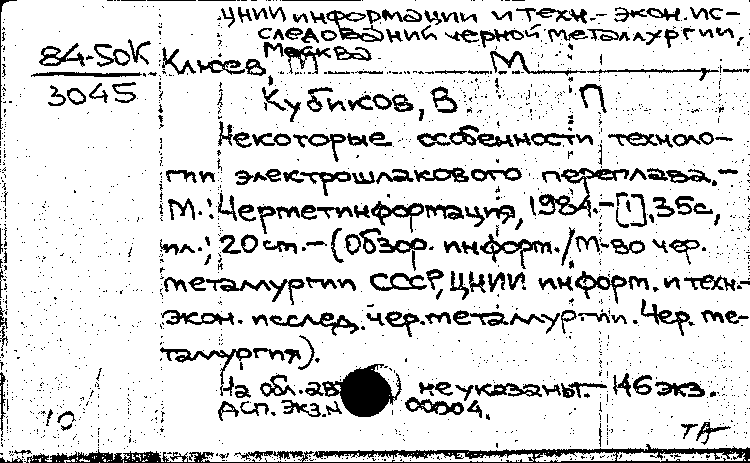 ЦНИИ информации и техн.- экон. ис-
следований черной металлургии,
Москва
84-50К
3045
Клюев, М М ,
Кубиков, В. П
Некоторые особенности техноло-
гии электрошлакового переплава.-
М.: Черметинформация, 1984.- [1], 35с,
ил.; 20 см.- (Обзор. информ./М-во чер.
металлургии СССР, ЦНИИ информ. и техн.-
экон. исслед. чер. металлургии. Чер. ме-
таллургия).
На обл. авт не указаны.- 146 экз.
ДСП. Экз. N 00004.
10
ТА